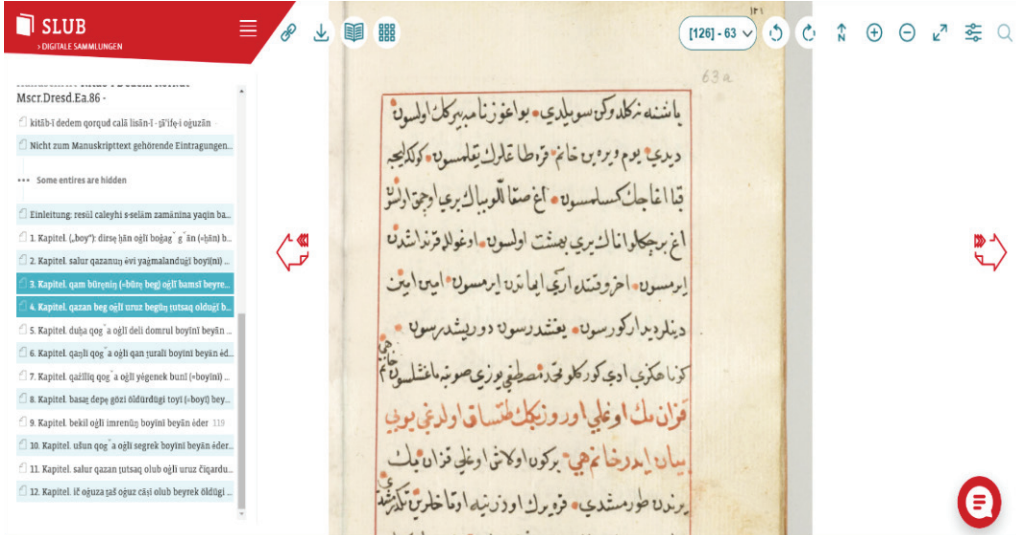 SLUB
> DIGITALE SAMMLUNGEN
[126] - 63
N
Mscr.Dresd.Ea.86 -
kitāb-ï dedem qorqud calā lisān-ï -ṭā'ife-i oġuzān
Nicht zum Manuskripttext gehörende Eintragungen...
Some entires are hidden
Einleitung: resūl caleyhi s-selām zamānina yaqin ba...
1. Kapitel. („boy“): dirse ḫān oġlï boġag˘ g˘ān (=ḫān) b...
2. Kapitel. salur qazanuŋ ėvi yaġmalanduġï boyï(ni) ...
3. Kapitel. qam büreniŋ (=büre beg) oġlï bamsï beyre...
4. Kapitel. qazan beg oġlï uruz begüŋ ṭutsaq olduġï b...
5. Kapitel. duḫa qog˘a oġlï deli domrul boyïnï beyān ...
6. Kapitel. qaŋlï qog˘a oġlï qan ṭuralï boyïnï beyān ėd...
7. Kapitel. qażïlïq qog˘a oġlï yėgenek bunï (=boyïnï) ...
8. Kapitel. basaṭ depe gözi öldürdügi toyï (=boyï) bey...
9. Kapitel. bekil oġlï imrenüŋ boyïnï beyān ėder 119
10. Kapitel. ušun qog˘a oġlï segrek boyïnï beyān ėder...
11. Kapitel. salur qazan ṭutsaq olub oġlï uruz čïqardu...
12. Kapitel. ič oġuza ṭaš oġuz cāṣï olub beyrek öldügi ...
١٢١
63a
باشنه نه كلدوكن سويلدي بو اغوزنامه بيرك اولسون
ديدي يوم ويره ين خانم قره طاغلرك يقلمسون كولكليجه
قبا اغاجك كسلمسون اغ صقاللو بابك يري اوچمق اولسون
اغ برچكلو اناك يري بهشت اولسون اوغوللو قرنداشدن
ايرمسون اخر وقتنده اري ايماندن ايرمسون امين امين
دينلر ديدار كورسون يغشدرسون دوريشدرسون
ادي كوركلو محمد مصطفي يوزي صوينه باغشلسون
خانم هي
قزان بك اوغلي اوروز بكك طتساق اولدغي بويي
بيان ايدر خانم هي بركون اولاش اوغلي قزان بك
يرندن طورمشدي قره يرك اوزرينه اوتاخلرين تكدرمشدي